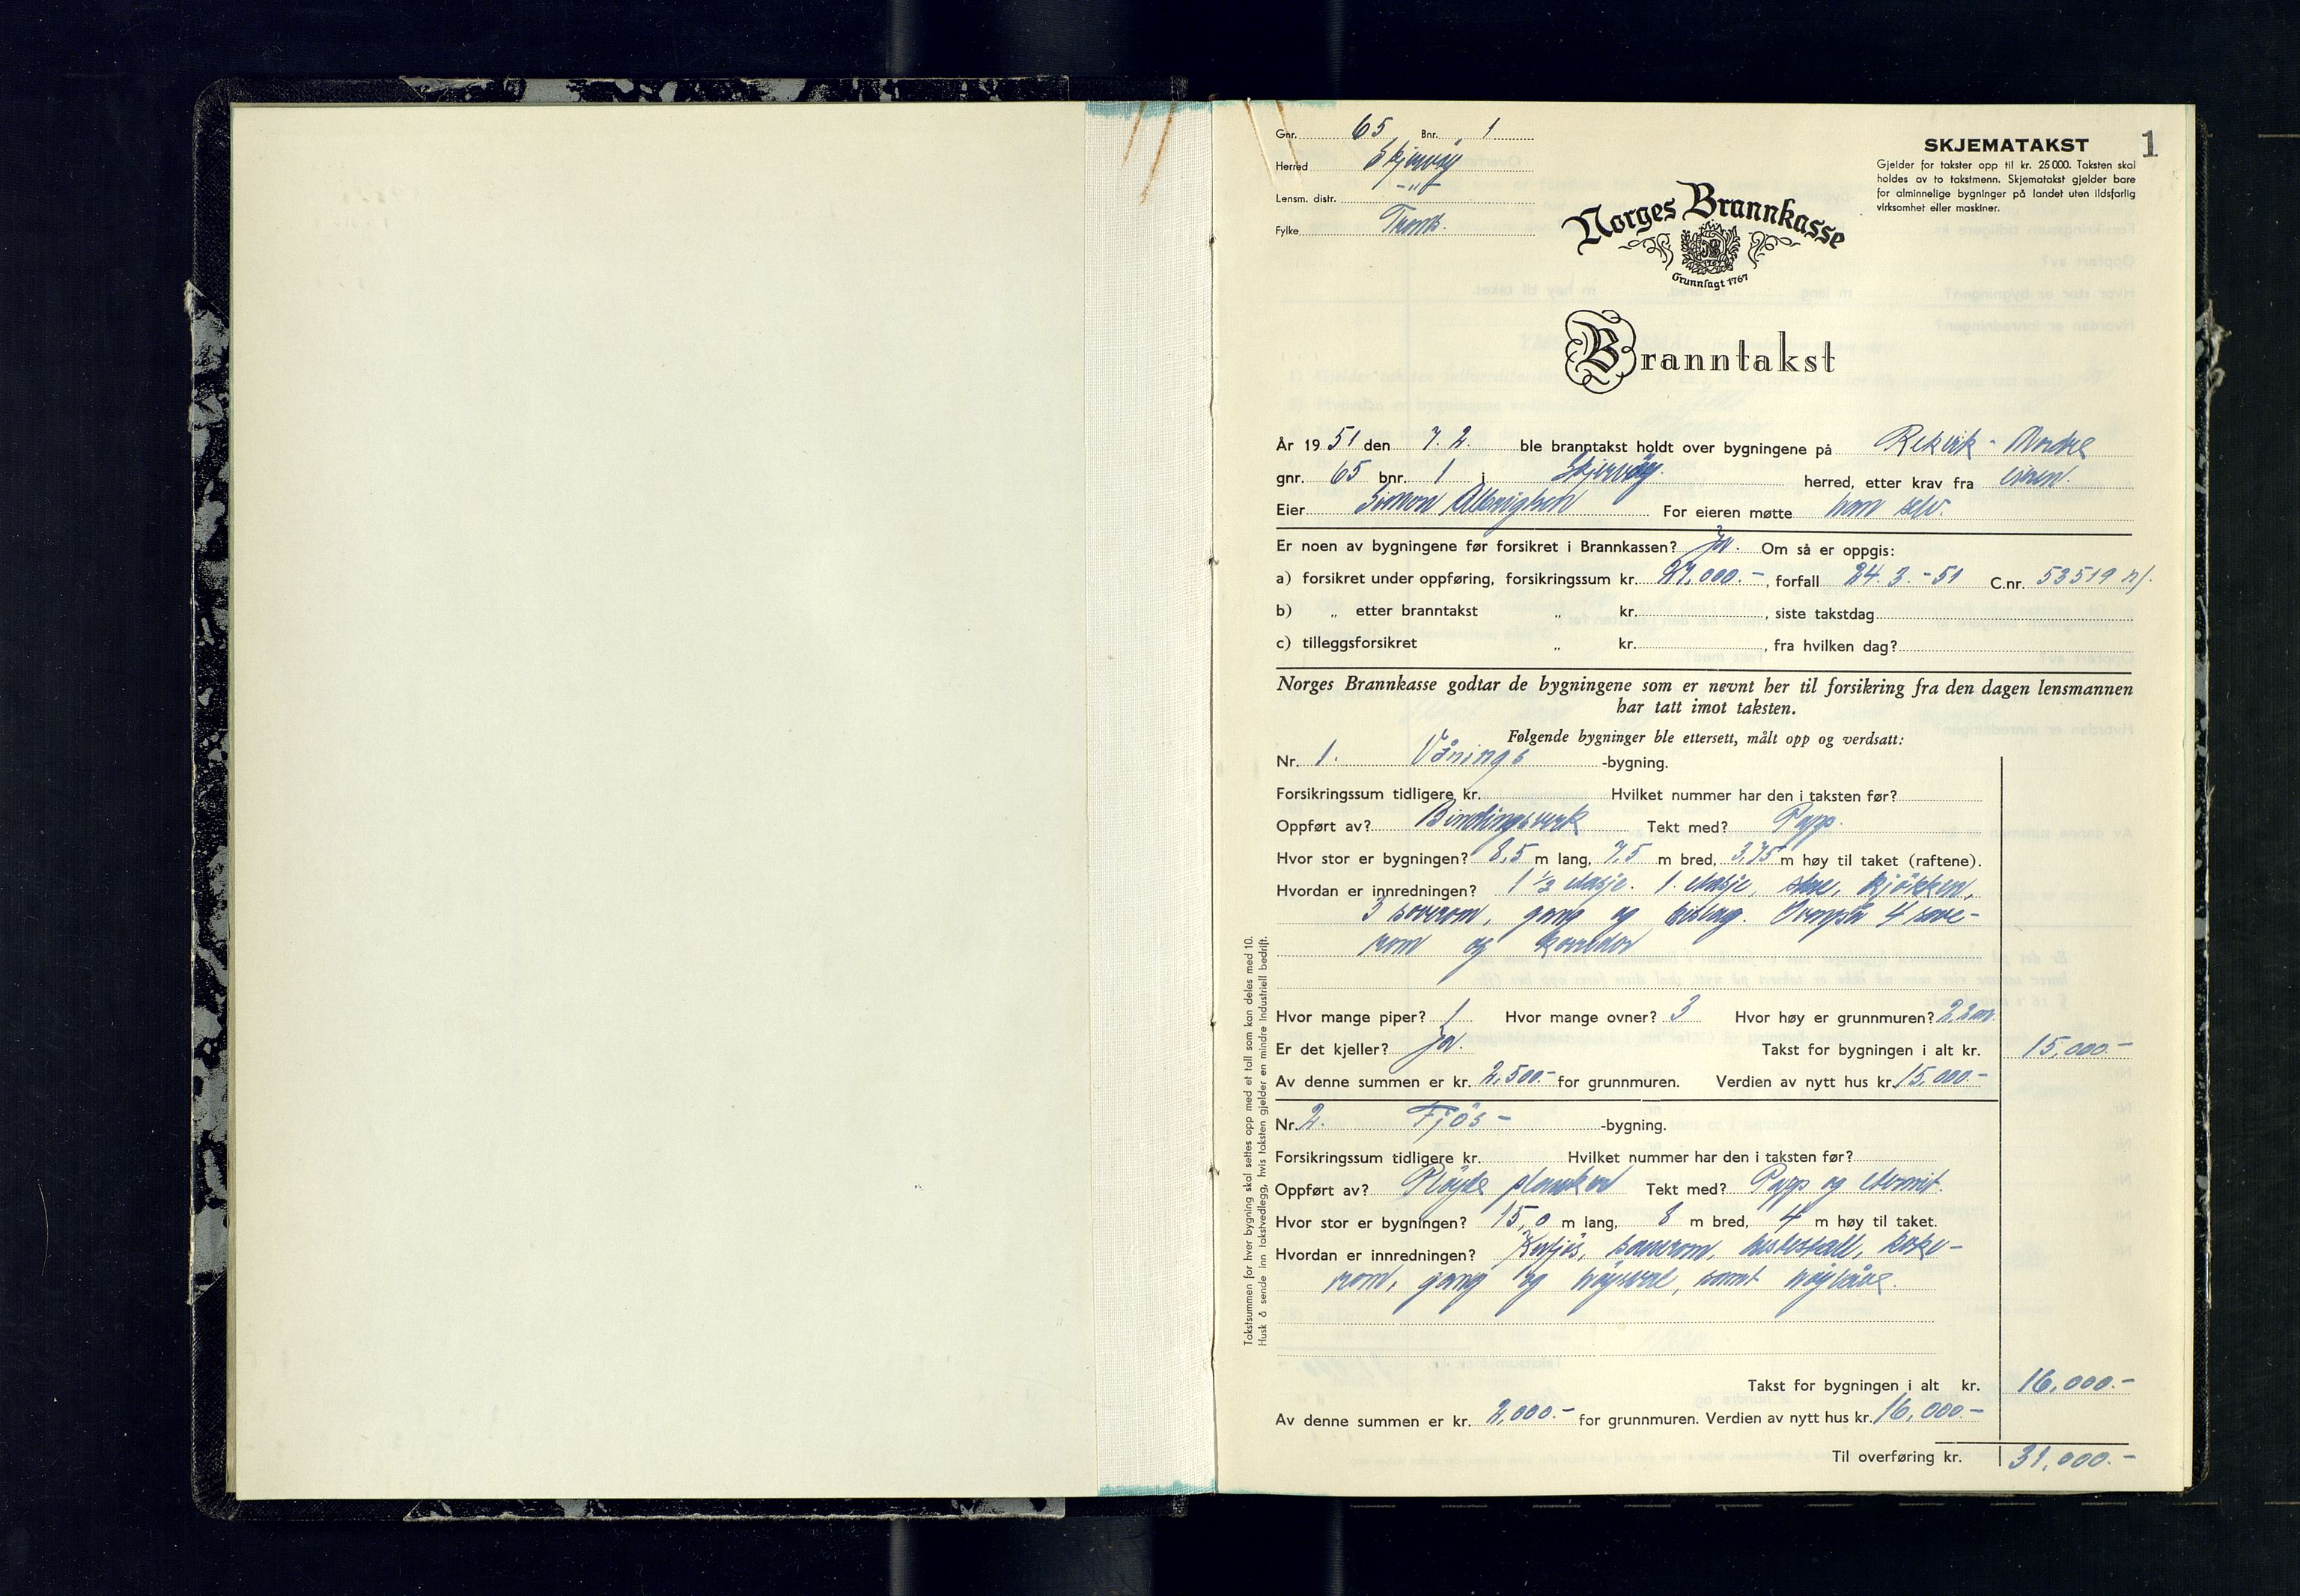 Gnr. 65 Bnr. 1
Herred Skjervøy
Lensm. distr. -"-
Fylke Troms.
SKJEMATAKST 1
Gjelder for takster opp til kr. 25 000. Taksten skal
holdes av to takstmenn. Skjematakst gjelder bare
for alminnelige bygninger på landet uten ildsfarlig
virksomhet eller maskiner.
Norges Brannkasse
NB
Grunnlagt 1767
Branntakst
År 1951 den 7. 2. ble branntakst holdt over bygningene på Rekvik - Nordre
gnr. 65 bnr. 1 i Skjervøy. herred, etter krav fra eieren.
Eier Simon Albrigtsen For eieren møtte han selv.
Er noen av bygningene før forsikret i Brannkassen? Ja. Om så er oppgis:
a) forsikret under oppføring, forsikringssum kr. 27,000.-, forfall 24. 3. - 51 C.nr. 53519 n/.
b) „ etter branntakst „ kr. , siste takstdag
c) tilleggsforsikret „ kr. , fra hvilken dag?
Norges Brannkasse godtar de bygningene som er nevnt her til forsikring fra den dagen lensmannen
har tatt imot taksten.
Følgende bygninger ble ettersett, målt opp og verdsatt:
Nr. 1. Vånings -bygning.
Forsikringssum tidligere kr. Hvilket nummer har den i taksten før?
Oppført av? Bindingsverk Tekt med? Papp.
Hvor stor er bygningen? 8,5 m lang, 7,5 m bred, 3,75 m høy til taket (raftene).
Hvordan er innredningen? 1 1/2 etasje. 1. etasje, stue, kjøkken,
3 soverom, gang og bislag. Ovenpå 4 sove-
rom og korridor
Hvor mange piper? 1 Hvor mange ovner? 3 Hvor høy er grunnmuren? 2,2 m.
Er det kjeller? Ja. Takst for bygningen i alt kr. 15,000.-
Av denne summen er kr. 2,500.- for grunnmuren. Verdien av nytt hus kr. 15,000.-
Nr. 2. Fjøs- -bygning.
Forsikringssum tidligere kr. Hvilket nummer har den i taksten før?
Oppført av? Pløyde planker Tekt med? Papp og eternit.
Hvor stor er bygningen? 15,0 m lang, 8 m bred, 4 m høy til taket.
Hvordan er innredningen? Kufjøs, sauerom, hestestall, koke-
rom, gang og høysvale, samt høylåve.
Takst for bygningen i alt kr. 16,000.-
Av denne summen er kr. 2,000.- for grunnmuren. Verdien av nytt hus kr. 16,000.-
Til overføring kr. 31,000.-
Takstsummen for hver bygning skal settes opp med et tall som kan deles med 10.
Husk å sende inn takstvedlegg, hvis taksten gjelder en mindre industriell bedrift.